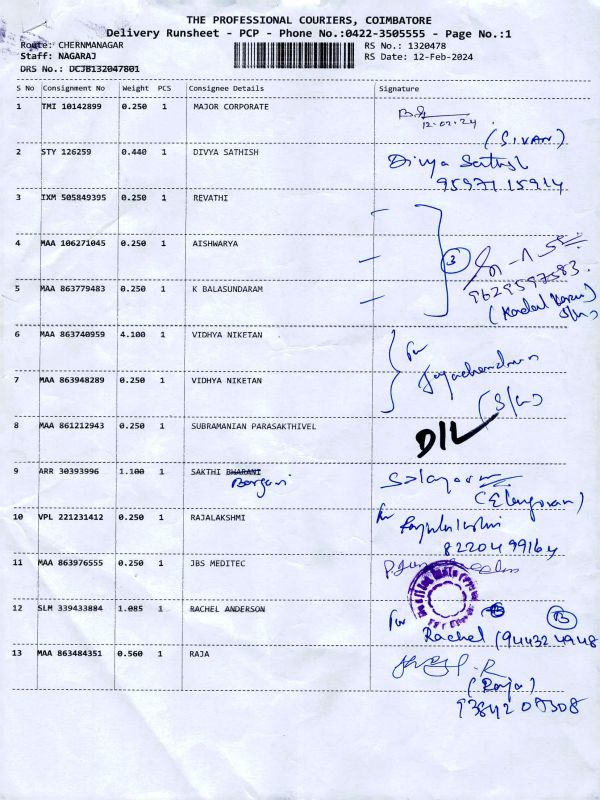 THE PROFESSIONAL COURIERS, COIMBATORE
Delivery Runsheet - PCP - Phone No.:0422-3505555 - Page No.:1
Route: CHERNMANAGAR RS No.: 1320478
Staff: NAGARAJ RS Date: 12-Feb-2024
DRS No.: DCJB132047801
S No Consignment No Weight PCS Consignee Details Signature
1 TMI 10142899 0.250 1 MAJOR CORPORATE
12.02.24
(SIVAN)
2 STY 126259 0.440 1 DIVYA SATHISH Divya Sathish
9597115914
3 IXM 505849395 0.250 1 REVATHI
4 MAA 106271045 0.250 1 AISHWARYA 3
5 MAA 863779483 0.250 1 K BALASUNDARAM 9629597583.
S/w)
6 MAA 863740959 4.100 1 VIDHYA NIKETAN for
7 MAA 863948289 0.250 1 VIDHYA NIKETAN Jayachandran
(S/w)
8 MAA 861212943 0.250 1 SUBRAMANIAN PARASAKTHIVEL D/L
9 ARR 30393996 1.100 1 SAKTHI BHARANI
(Elangovan)
10 VPL 221231412 0.250 1 RAJALAKSHMI for
8220499164
11 MAA 863976555 0.250 1 JBS MEDITEC
12 SLM 339433884 1.085 1 RACHEL ANDERSON for B
Rachel (944324948
13 MAA 863484351 0.560 1 RAJA
(Raja)
9384208308